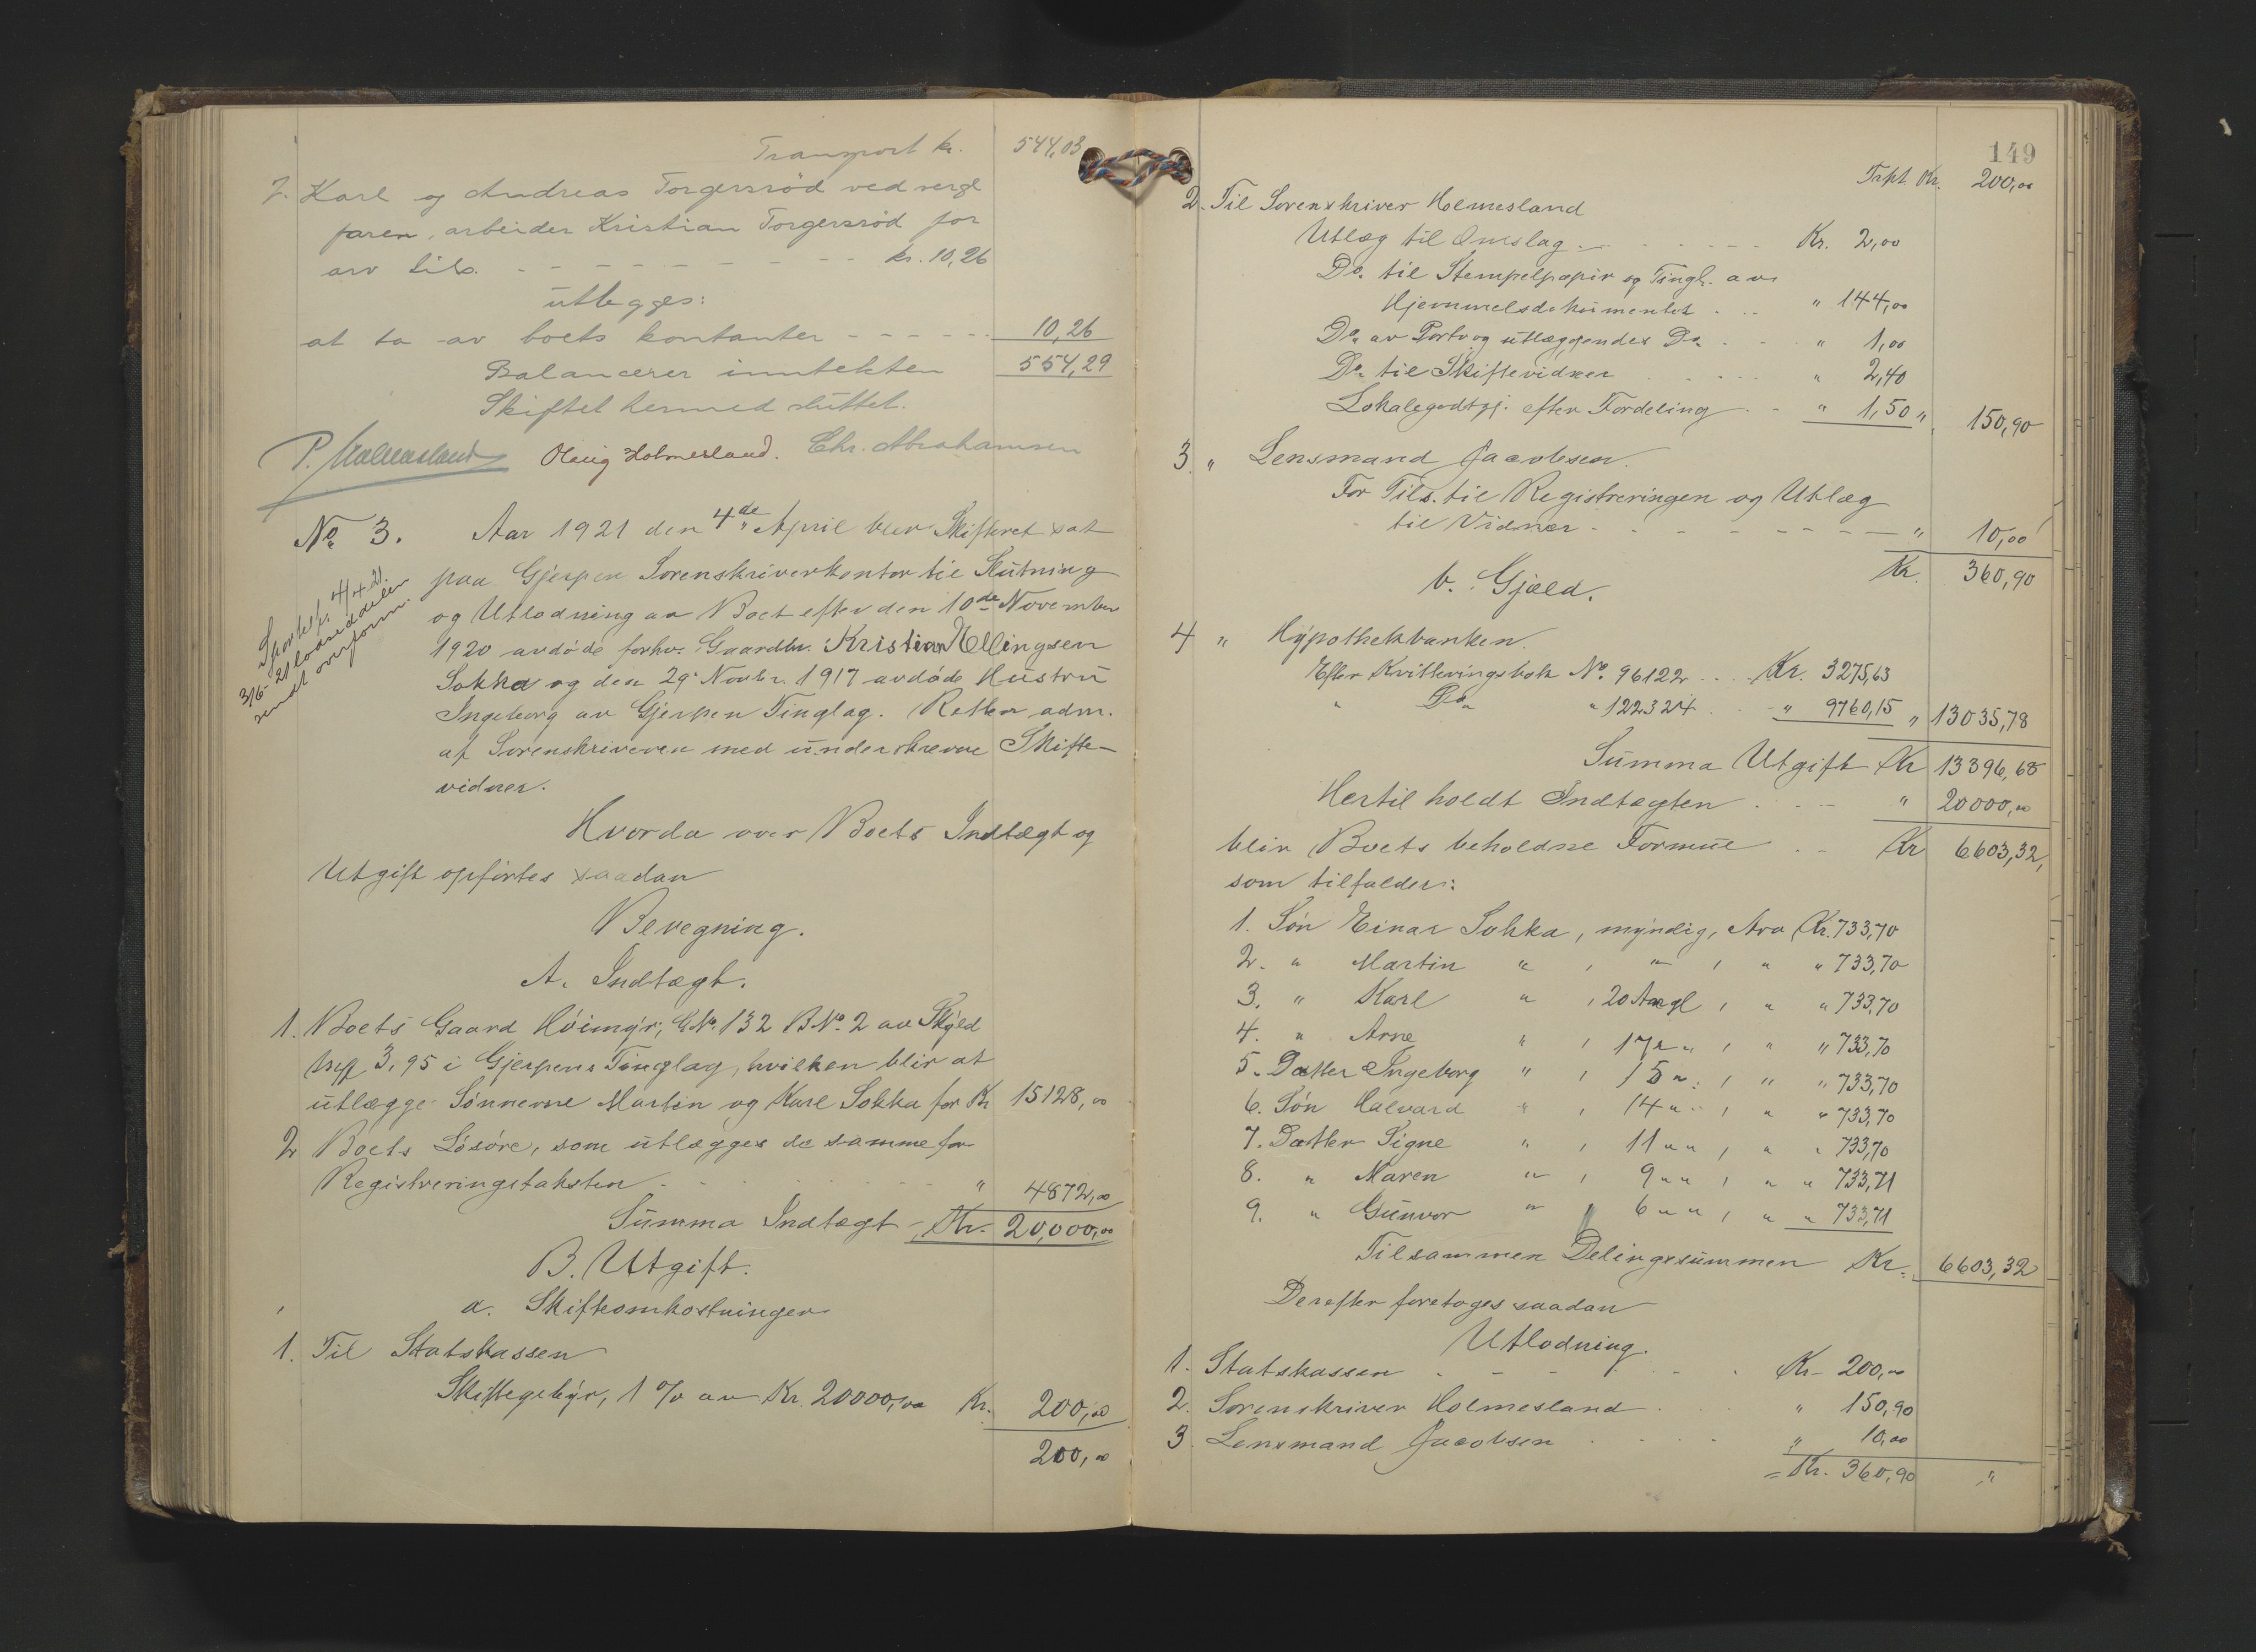 Transport kr. 544,03
7. Karl og Andreas Torgersrød ved verge
faren, arbeider Kristian Torgersrød for
arv tils. - - - - - - - - - kr. 10,26
utlegges:
at ta av boets kontanter - - - - - 10,26
Balancerer inntekten 554,29
Skiftet hermed sluttet.
P. Holmesland Olaug Holmesland. Chr. Abrahamsen
No. 3. Aar 1921 den 4de April blev Skifteret sat
paa Gjerpen Sorenskriverkontor til Slutning
og Utlodning av Boet efter den 10de November
1920 avdøde forhv. Gaardbr. Kristian Ellingsen
Sokka og den 29. Novbr. 1917 avdøde Hustru
Ingeborg av Gjerpen Tinglag. Retten adm.
af Sorenskriveren med underskrevne Skifte-
vidner.
4/4 21.
3/6-21 lodseddelen
sendt overform.
Hvorda over Boets Indtægt og
Utgift opførtes saadan
Beregning.
A. Indtægt.
1. Boets Gaard Høimyr, GNo. 132 BNo. 2 av Skyld
3,95 i Gjerpens Tinglag, hvilken blir at
utlægge Sønnerne Martin og Karl Sokka for Kr 15128,00
2 Boets Løsøre, som utlægges de samme for
Registreringstaksten - - - " 4872,00
Summa Indtægt - Kr. 20,000,00
B. Utgift.
a. Skifteomkostninger
1. Til Statskassen
Skiftegebyr, 1 % av Kr. 20000,00 Kr. 200,00
200,00
149
Trpt. Kr. 200,00
2. Til Sorenskriver Holmesland
Utlæg til Omslag - - - - - Kr. 2,00
Do. til Stempelpapir og Tingl. av
Hjemmelsdokumentet . . . " 144,00
Do. av Porto og utlæggendes Do. . . " 1,00
Do. til Skiftevidner . . . . " 2,40
Lokalegodtgj. efter Fordeling . - " 1,50 " 150,90
3. " Lensmand Jacobsen.
For Tils. til Registreringen og Utlæg
til Vidner - - - - - - - - - " 10,00
Kr. 360,90
b. Gjæld.
4 " Hypothekbanken.
Efter Kvitteringsbok No. 96122 . . Kr. 3275,63
" Do. " 122324 . - " 9760,15 " 13035,78
Summa Utgift Kr 13396,68
Hertil holdt Indtægten . . . - " 20000,00
blir Boets beholdne Formue . - Kr 6603,32,
som tilfalder:
1. Søn Einar Sokka, myndig, Arv Kr. 733,70
2. " Martin " , " , " " 733,70
3. " Karl " , 20 Aar gl , " " 733,70
4. " Arne " , 17 " " , " " 733,70
5. Datter Ingeborg " , 15 " , " " 733,70
6. Søn Halvard " , 14 " " , " " 733,70
7. Datter Signe " , 11 " " , " " 733,70
8. " Maren " , 9 " " , " " 733,71
9. " Gunvor " , 6 " " , " " 733,71
Tilsammen Delingssummen Kr. 6603,32
Derefter foretoges saadan
Utlodning.
1. Statskassen - - - - . Kr - 200,00
2. Sorenskriver Holmesland . . . " 150,90
3. Lensmand Jacobsen . . . " 10,00
= Kr. 360,90 "